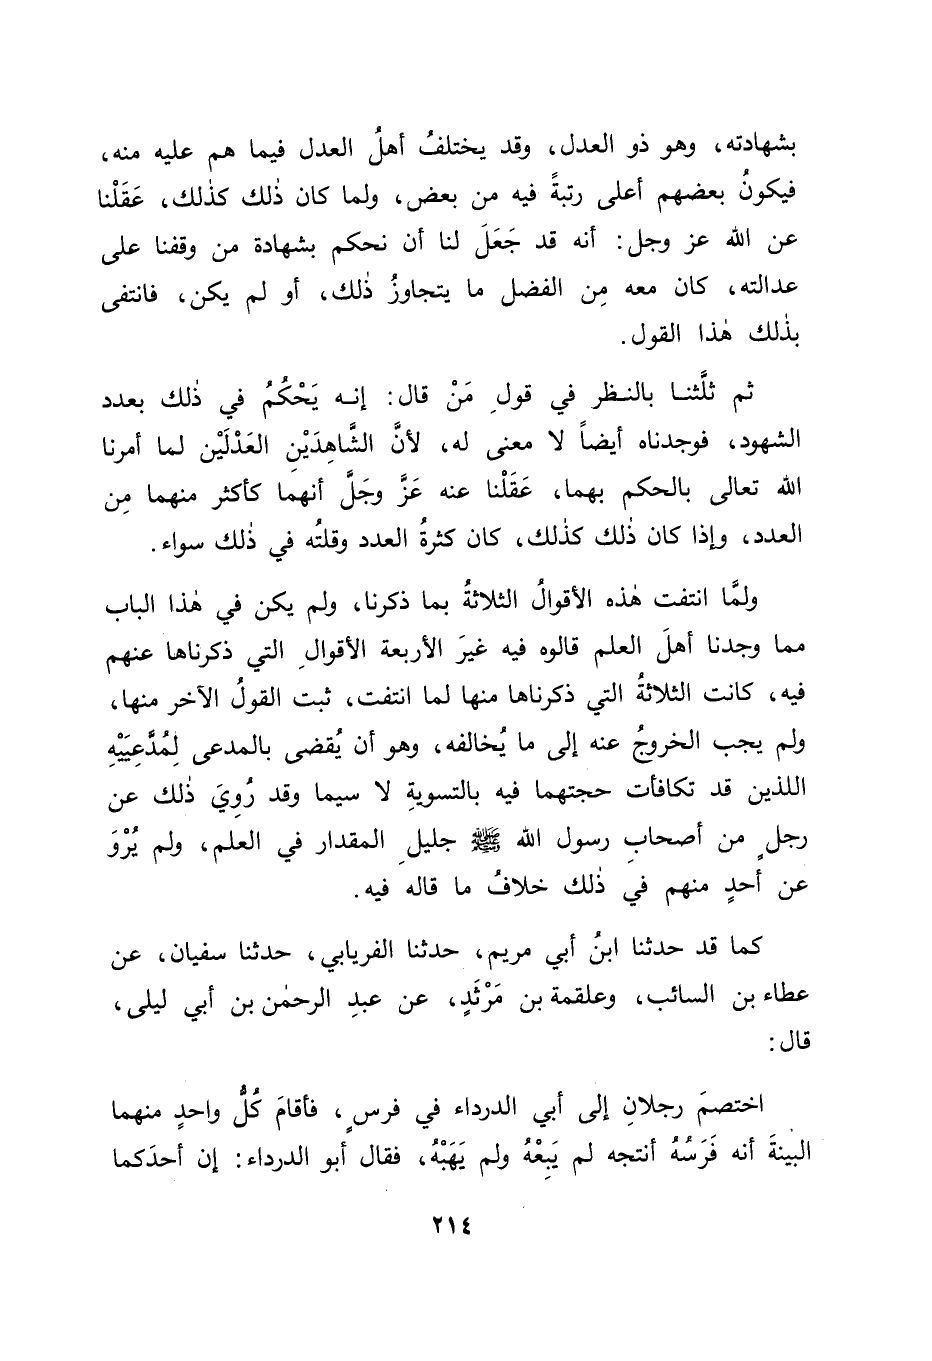 بشهادته، وهو ذو العدل، وقد يختلفُ أهلُ العدل فيما هم عليه منه،
فيكونُ بعضهم أعلى رتبةً فيه من بعض، ولما كان ذٰلك كذٰلك، عَقَلْنا
عن الله عز وجل: أنه قد جَعَلَ لنا أن نحكم بشهادة من وقفنا على
عدالته، كان معه مِن الفضل ما يتجاوزُ ذٰلك، أو لم يكن، فانتفى
بذٰلك هٰذا القول.
ثم ثلَّثنا بالنظر في قولِ مَنْ قال: إنه يَحْكُمُ في ذٰلك بعدد
الشهود، فوجدناه أيضاً لا معنى له، لأنَّ الشَّاهِدَيْنِ العَدْلَيْن لما أمرنا
الله تعالى بالحكم بهما، عَقَلْنا عنه عَزَّ وجَلَّ أنهما كأكثر منهما مِن
العدد، وإذا كان ذٰلك كذٰلك، كان كثرةُ العدد وقلتُه في ذٰلك سواء.
ولمَّا انتفت هٰذه الأقوالُ الثلاثةُ بما ذكرنا، ولم يكن في هٰذا الباب
مما وجدنا أهلَ العلم قالوه فيه غيرَ الأربعة الأقوالِ التي ذكرناها عنهم
فيه، كانت الثلاثةُ التي ذكرناها منها لما انتفت، ثبت القولُ الآخر منها،
ولم يجب الخروجُ عنه إلى ما يُخالفه، وهو أن يُقضى بالمدعى لِمُدَّعِيَيْهِ
اللذين قد تكافأت حجتهما فيه بالتسويةِ لا سيما وقد رُوِيَ ذٰلك عن
رجلٍ من أصحابِ رسول الله ﷺ جليلِ المقدار في العلم، ولم يُرْوَ
عن أحدٍ منهم في ذٰلك خلافُ ما قاله فيه.
كما قد حدثنا ابنُ أبي مريم، حدثنا الفريابي، حدثنا سفيان، عن
عطاء بن السائب، وعلقمة بن مَرْثَدٍ، عن عبدِ الرحمٰن بن أبي ليلى،
قال:
اختصمَ رجلانِ إلى أبي الدرداء في فرسٍ، فأقامَ كُلُّ واحدٍ منهما
البينةَ أنه فَرَسُهُ أنتجه لم يَبِعْهُ ولم يَهَبْهُ، فقال أبو الدرداء: إن أحدَكما
٢١٤